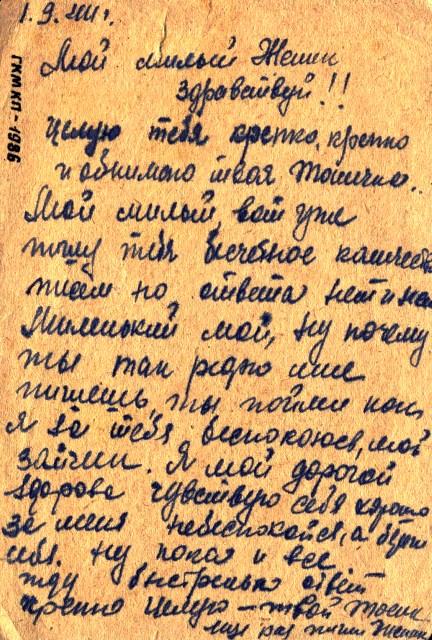 1.9.
ГКМ КП-1986
Мой милый Женик
здравствуй!!
Целую тебя крепко, крепко
и обнимаю твоя Тосичка..
Мой милый, вот уже
пишу тебя бесчебное количеств
писем но, ответа нет и нет
Миленький мой, ну почему
ты так редко мне
пишешь, ты пойми как
я за тебя беспокоюся, мой
зайчик. Я мой дорогой
здорова чувствую себя хорошо
за меня небеспокойся, а береги
себя. Ну пока и все
жду быстренько ответ
крепко целую – твой Тосик
еще раз пиши Женик